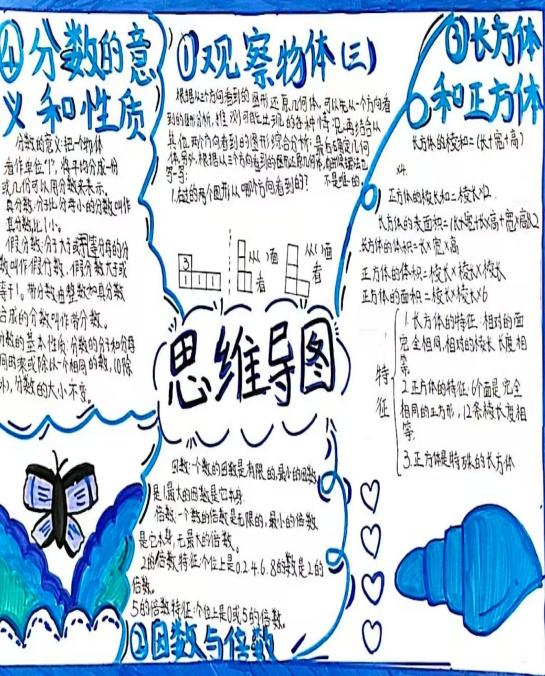 ④分数的意
义和性质
分数的意义:把一个物体
看作单位"1",将平均分成一份
或几份可以用分数来表示.
真分数:分子比分母小的分数叫作
真分数,比1小。
假分数:分子大于或等于分母的分
数叫作假分数.假分数大于或
等于1。带分数由整数和真分数
合成的分数叫作带分数。
数的基本性质:分数的分子和分母
同时乘或除以一个相同的数,(0除
外),分数的大小不变。
①观察物体(三)
根据从三个方向看到的图形还原几何体,可以先从一个方向看
到的图形分析,推
不是唯一的。
1.左边的两个图形从哪个方向看到的?
3
1 1 1
从( )面
看
从( )面
看
③长方体
和正方体
长方体的棱和=(长+宽+高)
×4
正方体的棱长和=棱长×12
长方体的表面积=(长×宽+长×高+宽×高)×2
长方体的体积=长×宽×高
正方体的体积=棱长×棱长×棱长
正方体的面积=棱长×棱长×6
特
征
1.长方体的特征:相对的面
完全相同,相对的棱长长度相
等.
2.正方体的特征:6个面是完全
相同的正方形,12条棱长度相
等.
3.正方体是特殊的长方体
思维导图
因数:一个数的因数是有限的,最小的因数
是1最大的因数是它本身
倍数:一个数的倍数是无限的,最小的倍数
是它本身,无最大的倍数。
2的倍数特征:个位上是0.2.4.6.8的数是2的
倍数。
5的倍数特征:个位上是0或5的倍数。
②因数与倍数